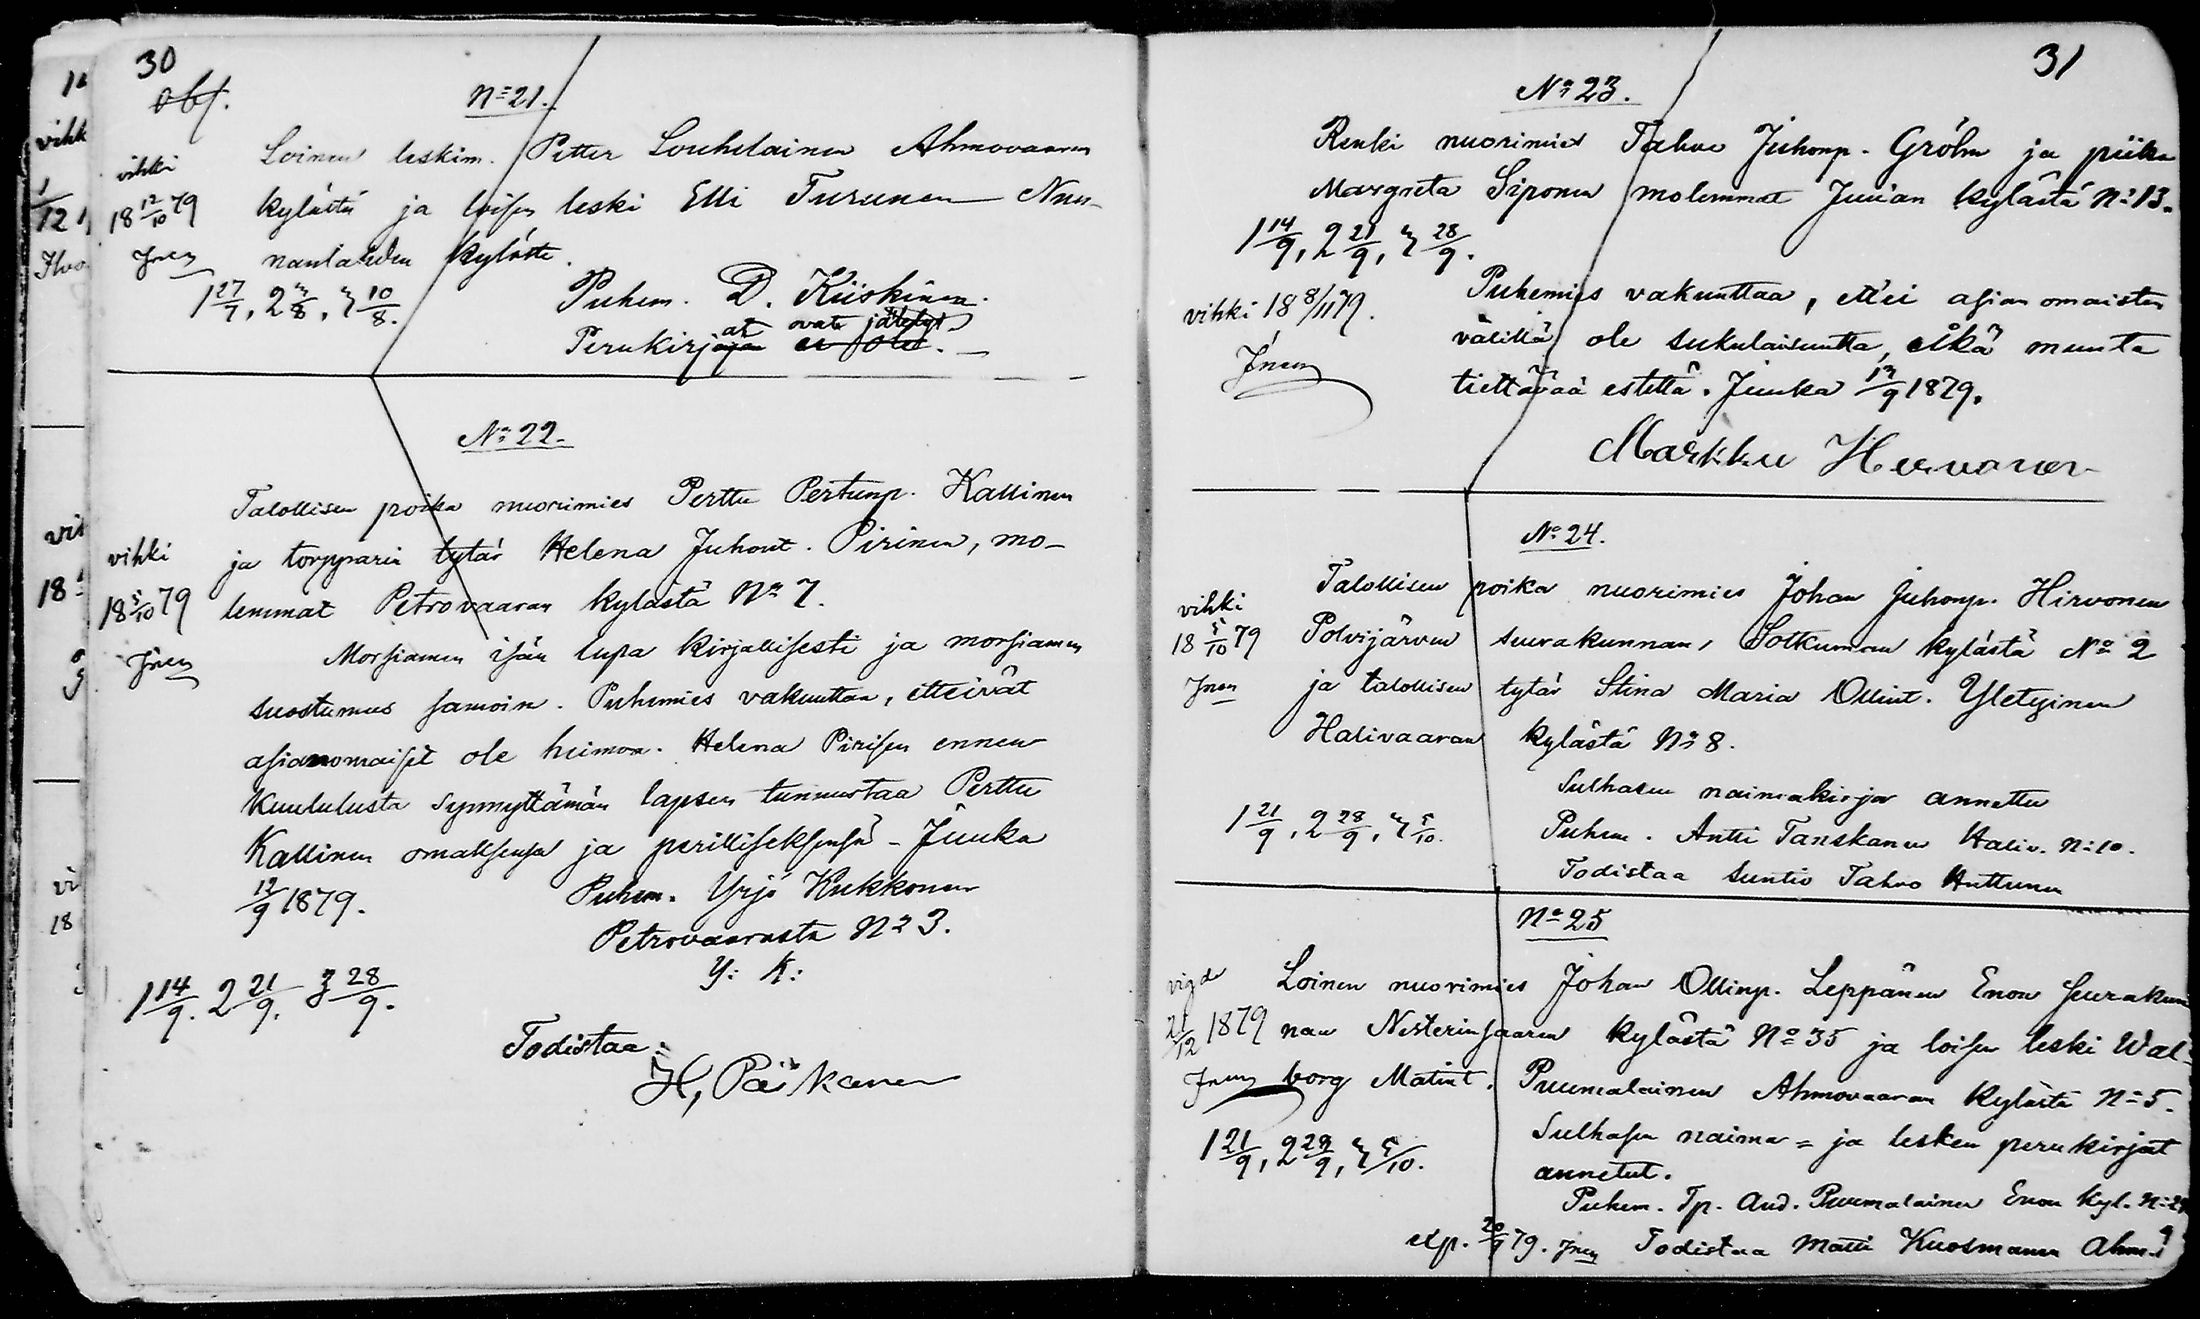 30
obs.
N:o 21.
Loinen leskim. Petter Louhelainen Ahmovaaran
vihki
kylästä ja loisen leski Elli Turunen Nun-
18 12/10 79
Jnen
nanlahden kylästä.
1 27/7, 2 3/8, 3 10/8.
Puhem. D. Kiiskinen.
Perukirjat ovat
N:o 22.
Talollisen poika nuorimies Perttu Pertunp. Kallinen
vihki
ja torpparin tytär Helena Juhont. Pirinen, mo-
18 5/10 79
lemmat Petrovaaran kylästä N:o 7.
Jnen
Morsiamen isän lupa kirjallisesti ja morsiamen
suostumus samoin. Puhemies vakuuttaa, etteivät
asianomaiset ole heimoa. Helena Pirisen ennen
kuulutusta synnyttämän lapsen tunnustaa Perttu
Kallinen omaksensa ja perilliseksensä - Juuka
12/9 1879.
Puhem. Yrjö Kukkonen
Petrovaarasta N:o 3.
Y: K:
1 14/9. 2 21/9. 3 28/9.
Todistaa:
H, Päi̊känen
31
N:o 23.
Renki nuorimies Tahvo Juhonp. Gröhn ja piika
Margreta Siponen molemmat Juuan kylästä N:o 13.
1 14/9, 2 21/9, 3 28/9.
Puhemies vakuuttaa, ett'ei asian omaisten
vihki 18 8/11 79.
välillä ole sukulaisuutta, eikä muuta
Jnen
tiettävää estettä. Juuka 13/9 1879.
Markku Hirvonen
N:o 24.
Talollisen poika nuorimies Johan Juhonp. Hirvonen
vihki
18 5/10 79
Polvijärven seurakunnan, Sotkuman kylästä N:o 2
Jnen
ja talollisen tytär Stina Maria Ollint. Yletyinen
Halivaaran kylästä N:o 8.
Sulhasen naimakirja annettu
1 21/9, 2 28/9, 3 5/10.
Puhem. Antti Tanskanen Haliv. N:o 10.
Todistaa suntio Tahvo Huttunen
N:o 25
vigd
Loinen nuorimies Johan Ollinp. Leppänen Enon seurakun
21/12 1879
nan Nesterinsaaren kylästä N:o 35 ja loisen leski Wal-
Jnen
borg Matint. Puumalainen Ahmovaaran kylästä N:o 5.
Sulhasen naima- ja lesken perukirjat
1 21/9, 2 28/9, 3 5/10.
annetut.
Puhem. Tp. And. Puumalainen Enon kyl. N:o
exp. 20/9 79. Jnen Todistaa Matti Kuosmanen Ahm.